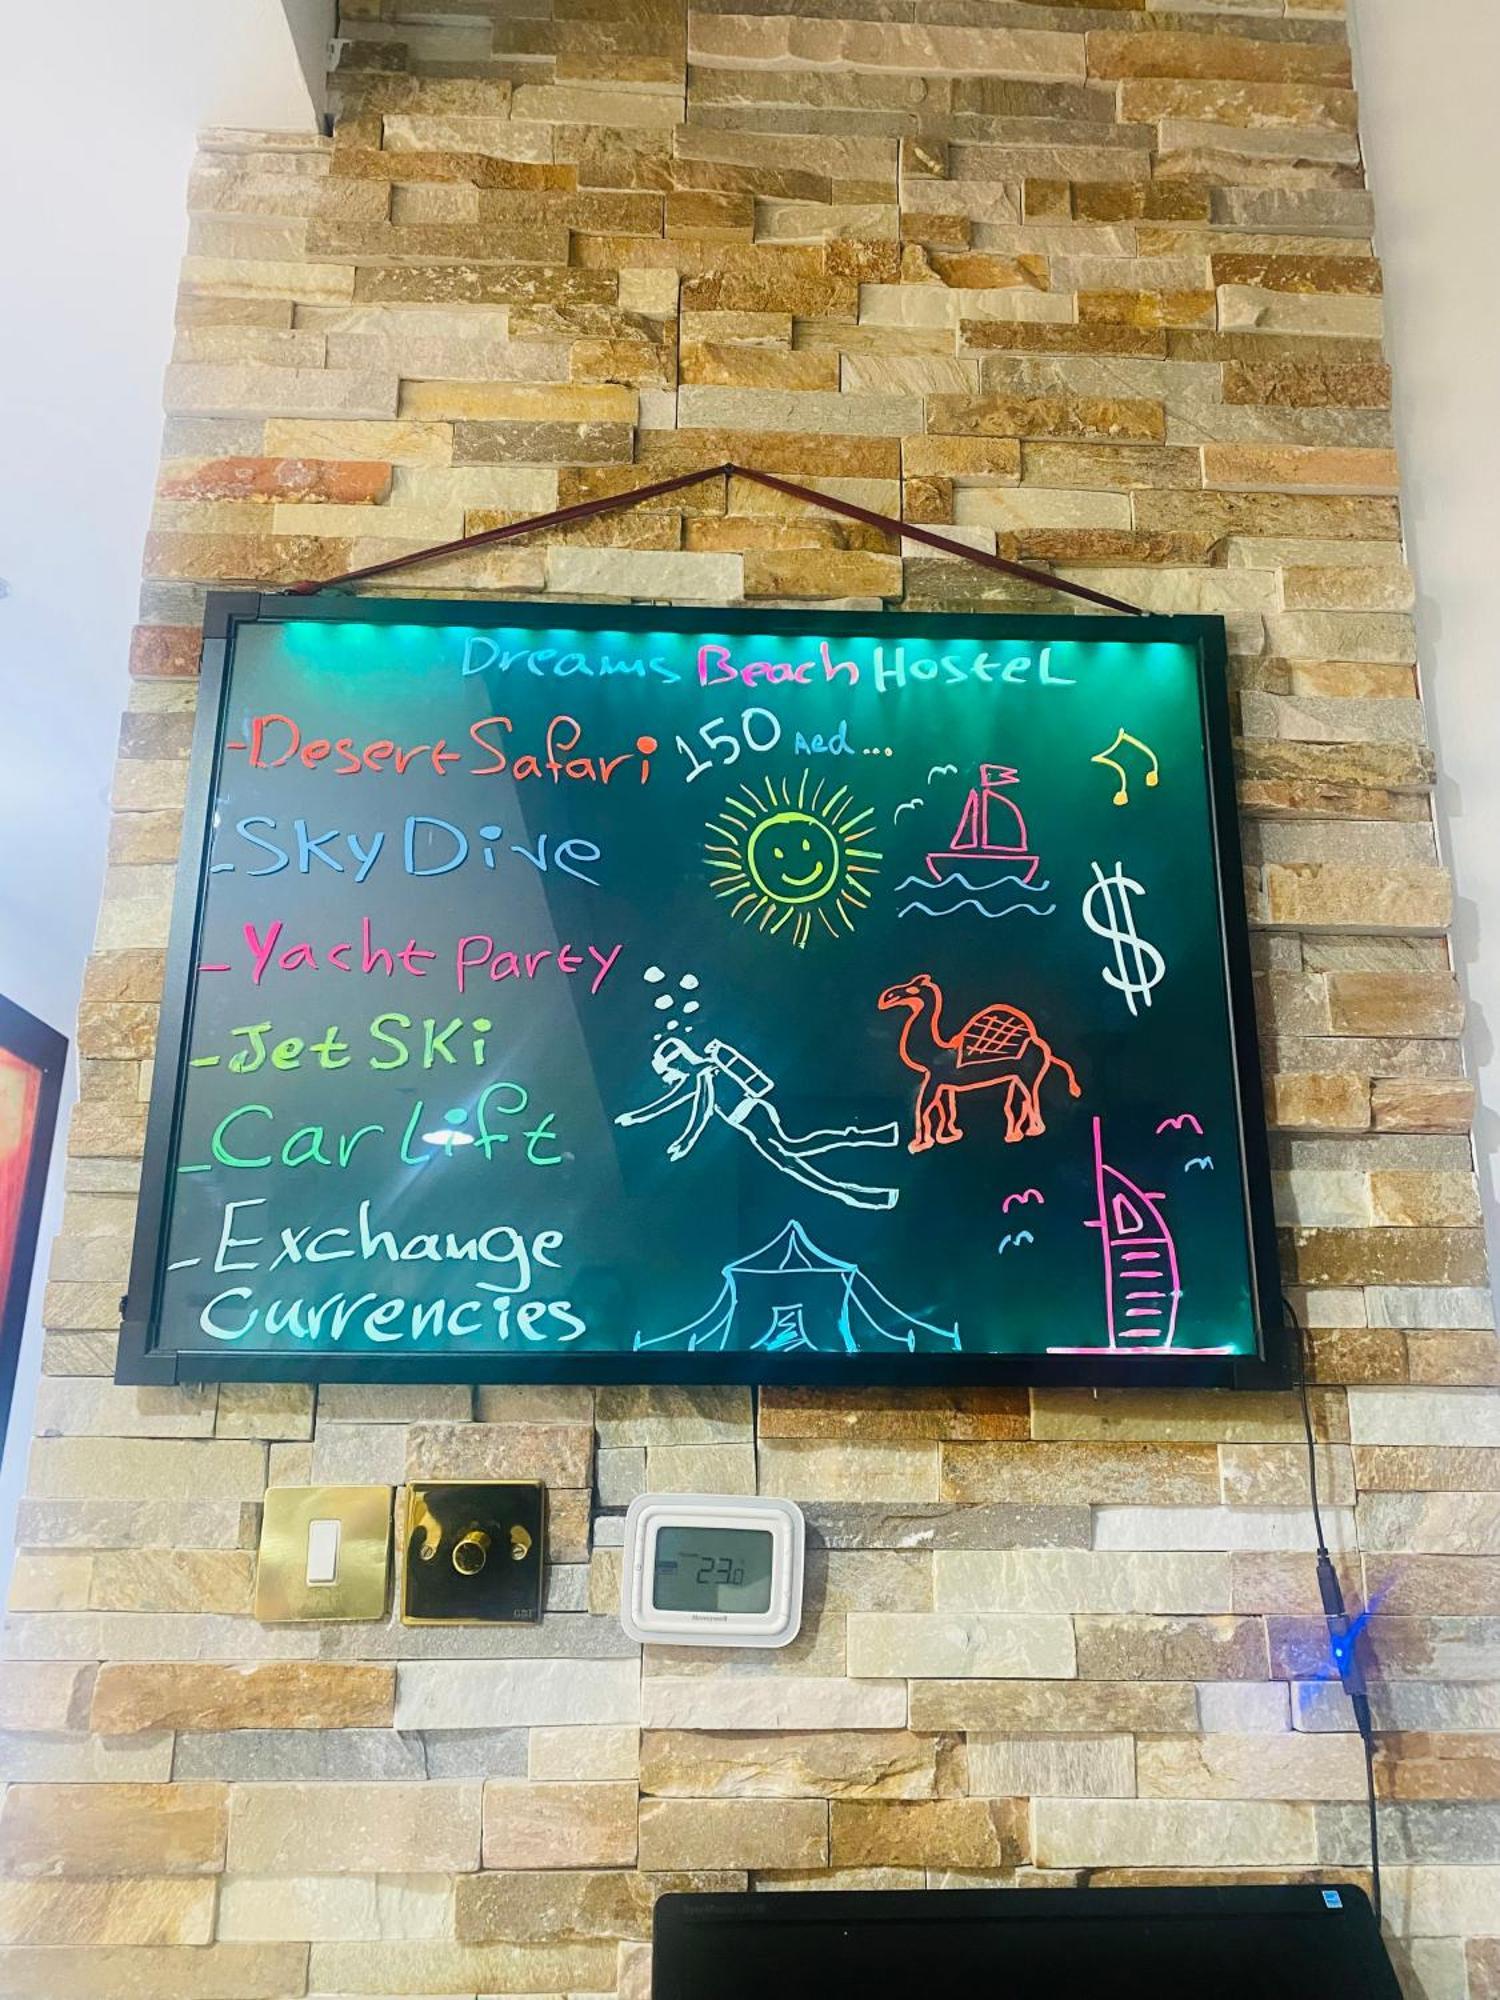 Dreams Beach Hostel
-Desert Safari 150 Aed...
-Sky Dive
-Yacht Party
-Jet Ski
-Car Lift
-Exchange
Currencies
$
23.0
Honeywell